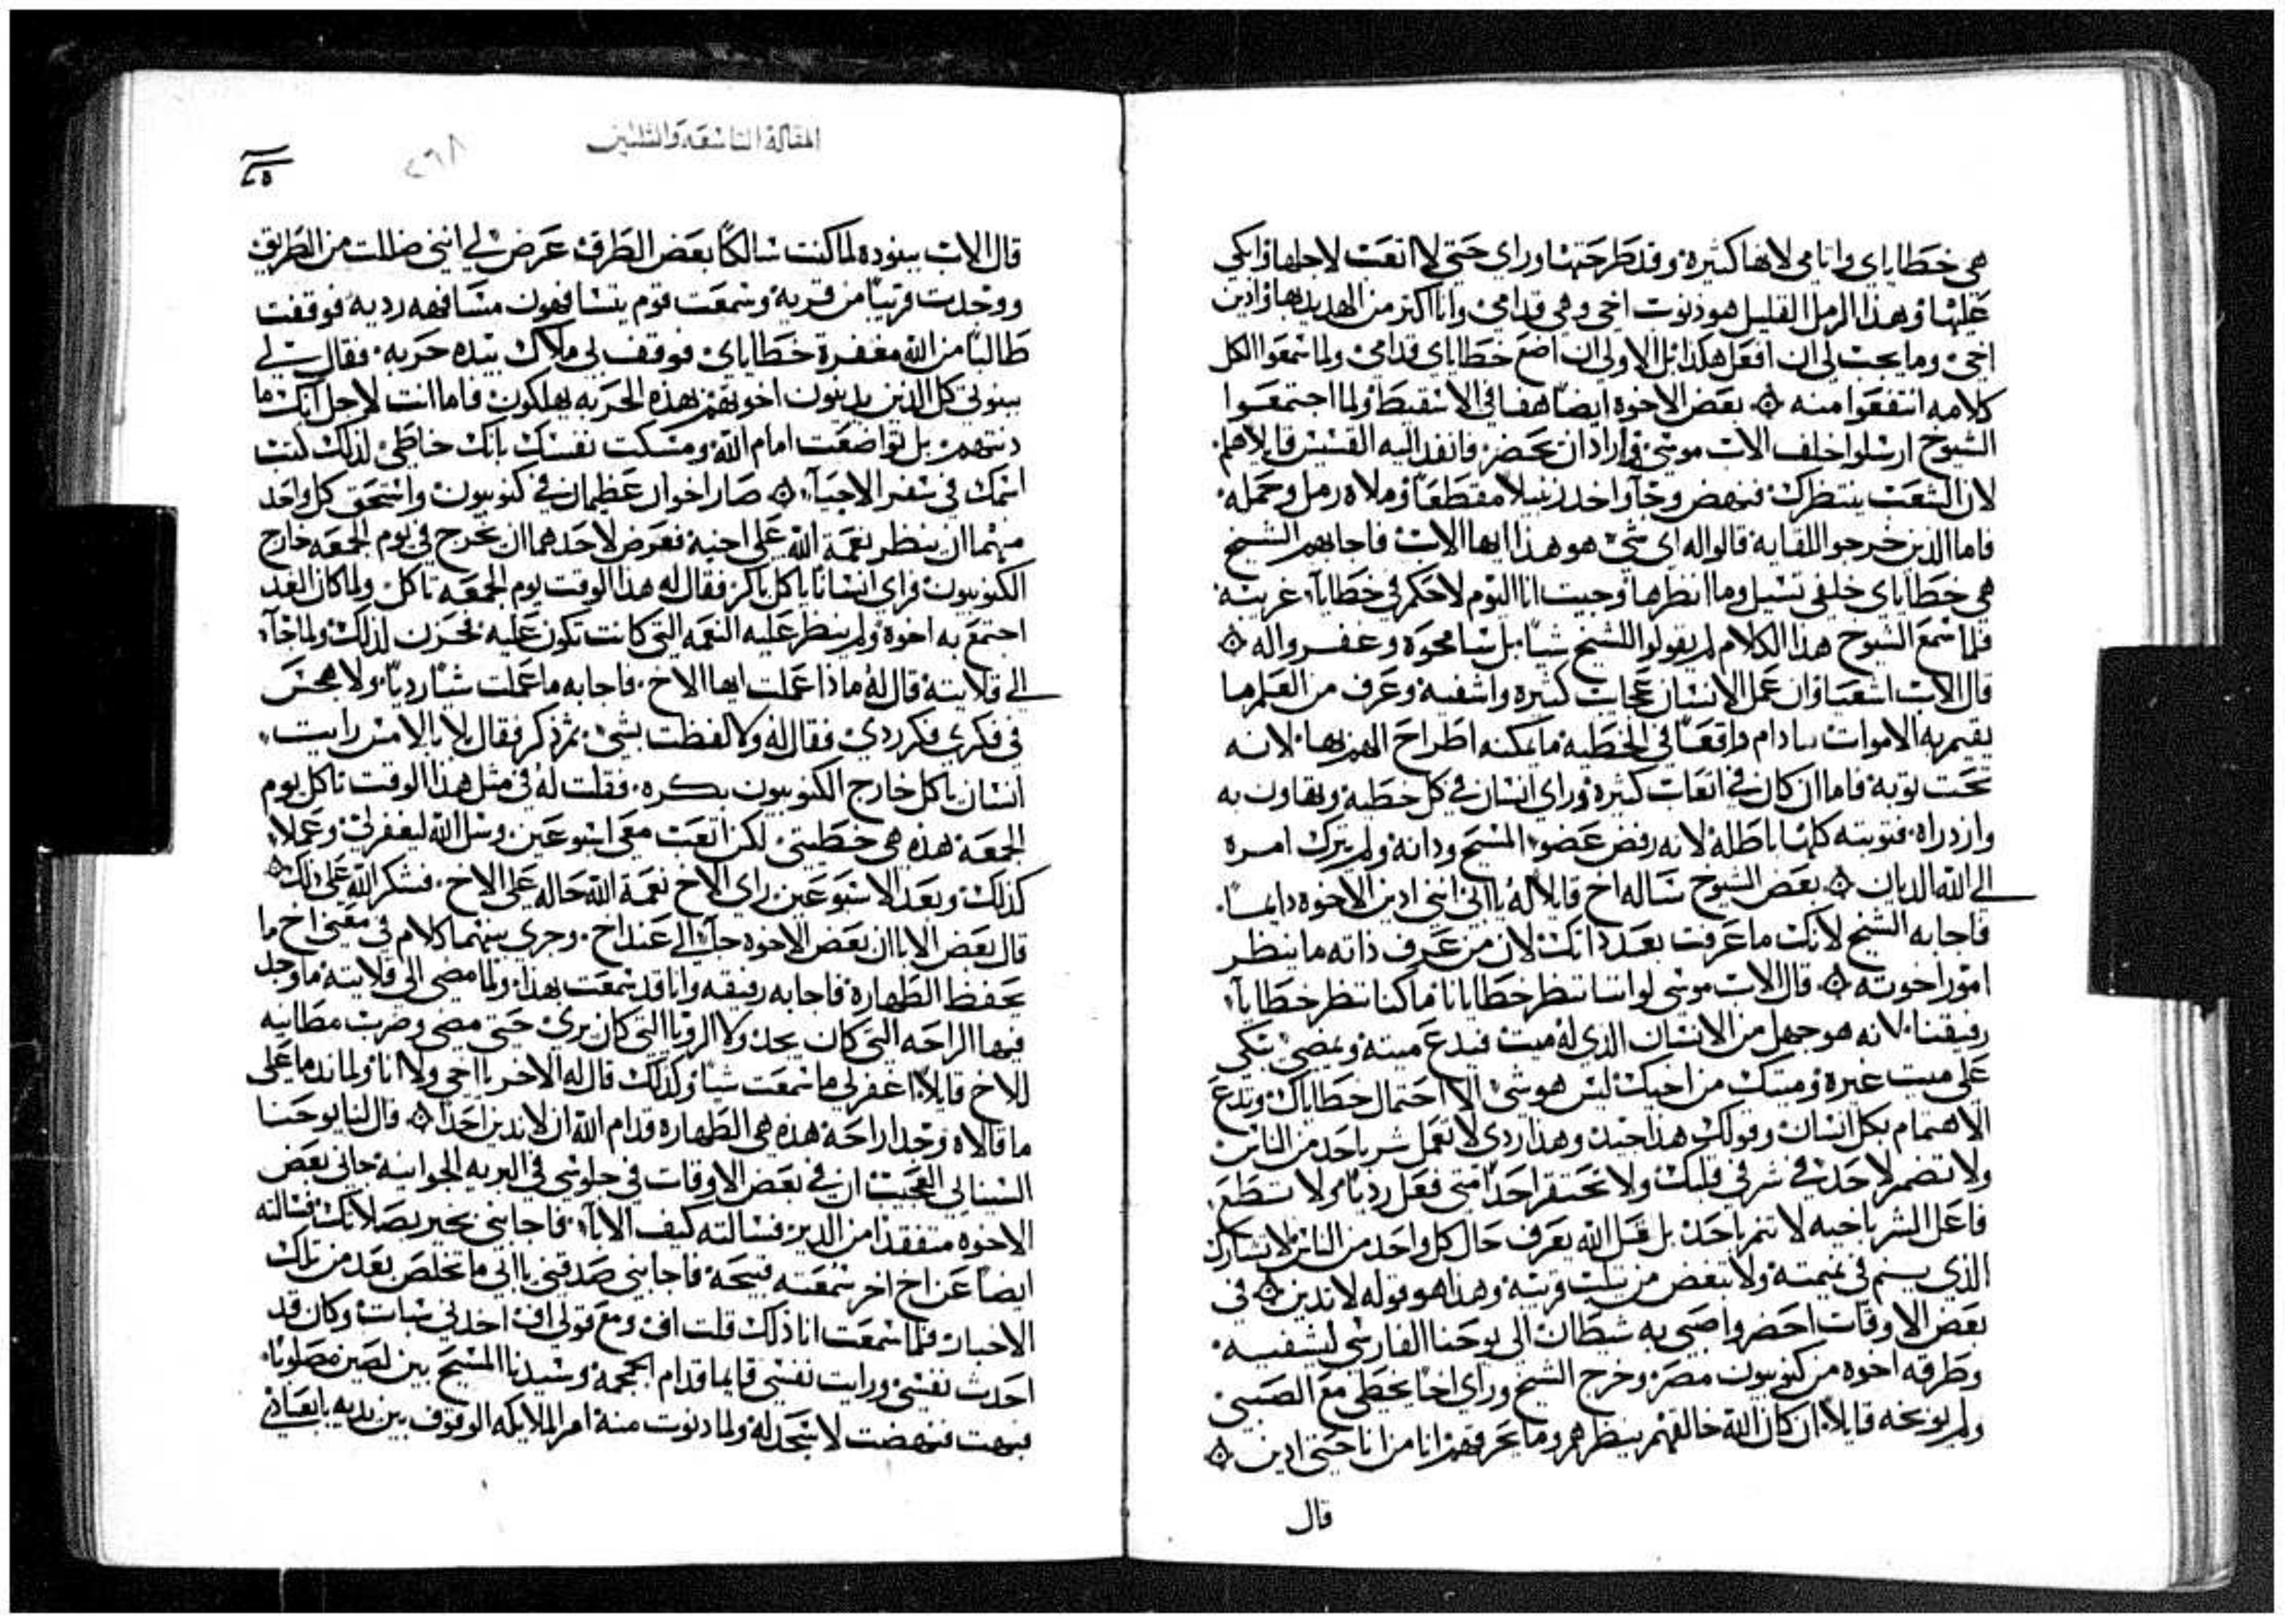 هي خطاياي وانا مي لانها كثيرة وقد طرحتها وراي حتى لا اتعب لاجلها وابكي
عليها وهذا الرمل القليل هو ذنوب اخي وهي قدامي وانا اكتر من الهديد بها وادين
اخي وما يجب لي ان افعل هكذا بل الاولى ان اضع خطاياي قدامي ولما سمعوا الكل
كلامه انتفعوا منه بعض الاخوة ايضا هفا في الاسقيط ولما اجتمعوا
الشيوخ ارسلوا خلف الاب موسى واراد ان يحضر فانفد اليه القسيس قايلا هلم
لان الشعب ينتظرك فنهض وجآ واخد زنبيلا مقطعا وملاه رمل وحمله
فاما الذين خرجوا للقايه قالوا له اي شي هو هذا ايها الاب فاجابهم الشيخ
هي خطاياي خلفي تسيل وما انظرها وجيت انا اليوم لاحكم في خطايآ غريبة
فلما سمع الشيوخ هذا الكلام لم يقولوا للشيخ شيا بل سامحوه وغفروا له
قال الاب اشعيا ان عمل الانسان عجاب كثيرة واشفية وعرف من العلم ما
يقيم به الاموات مادام واقعا في الخطية ما يمكنه اطراح الهم بها لانه
تحت توبة فاما ان كان في اتعاب كثيرة وراي انسان في كل خطية وتهاون به
وازدراه فتوبته كلها باطلة لانه رفض عضو المسيح ودانه ولم يترك امره
الى الله الديان بعض الشيوخ ساله اخ قايلا له يا ابي انني ادين الاخوة دايما
فاجابه الشيخ لانك ما عرفت بعد ذاتك لان من عرف ذاته ما ينظر
امور اخوته قال الاب موسى لو اننا ننظر خطايانا ما كنا ننظر خطايآ
رفيقنا لانه هو جهل من الانسان الذي له ميت فيدع ميته ويمضي يبكي
على ميت غيره وميتك من اخيك ليس هو شي الا احتمال خطاياك وتدع
الاهتمام بكل انسان وقولك هذا جيد وهذا ردي لا تعمل شر باحد من الناس
ولا تضمر لاحد في شر في قلبك ولا تحتقر احدا متى فعل رديا ولا تسطع
فاعل الشر باخيه لا تنم باحد بل قل الله يعرف حال كل واحد من الناس لا تشارك
الذي ينم في نميمته ولا تبغض من يثلب قريبه وهذا هو قوله لا تدين في
بعض الاوقات احضروا صبي به شيطان الى يوحنا الفارسي ليشفيه
وطرقه اخوه من كنوبيون مصر وخرج الشيخ وراى اخا يخطي مع الصبي
ولم يوبخه قايلا ان كان الله خالقهم ينظرهم وما يحرقهم انا من انا حتى ادين
قال
المقالة التاسعة والثلثين
٢٦٨
قال الاب ببنوده لما كنت سالكا بعض الطرق عرض لي انني ضللت من الطريق
ووجدت قريبا من قرية وسمعت قوم يتسافهون مسافهه رديه فوقفت
طالبا من الله مغفرة خطاياي فوقف لي ملاك بيده حربه فقال لي
ببنوتي كل الذين يدينون اخوتهم بهذه الحربه يهلكون فاما انت لاجل انك ما
دنتهم بل تواضعت امام الله ومسكت نفسك بانك خاطي لذلك كتبت
اسمك في سفر الاحيآ صار اخوان عظيمان في كنوبيون واستحق كل واحد
منهما ان ينظر نعمة الله على اخيه فعرض لاحدهما ان يخرج في يوم الجمعه خارج
الكنوبيون فراى انسانا ياكل باكر فقال له هذا الوقت يوم الجمعه تاكل ولما كان الغد
اجتمع به اخوه ولم ينظر عليه النعمه التي كانت تكون عليه فحزن لذلك ولما جآ
الى قلايته قال له ماذا عملت ايها الاخ فاجابه ما عملت شيا رديا ولا هجس
في فكري فكر ردي فقال له ولا لفظت بشي ثم ذكر فقال بلا بالامس رايت
انسان ياكل خارج الكنوبيون بكره فقلت له في مثل هذا الوقت تاكل يوم
الجمعة هذه هي خطيتي لكن اتعب معي اسبوعين وسل الله ليغفر لي وعملا
كذلك وبعد الاسبوعين راى الاخ نعمة الله حاله على الاخ فشكر الله على ذلك
قال بعض الابا ان بعض الاخوه جآ الى عند اخ وجرى بينهما كلام في معنى اخ ما
يحفظ الطهارة فاجابه رفيقه وانا قد سمعت بهذا ولما مضى الى قلايته ما وجد
فيها الراحه التي كان يجد ولا الرويا التي كان يرى حتى مضى وضرب مطانيه
للاخ قايلا اغفر لي ما سمعت شيا وكذلك قال له الاخر يا اخي ولا انا ولما ندما على
ما قالاه وجدا راحة هذه هي الطهارة قدام الله ان لا ندين احدا قال لنا يوحنا
السينايي العجيب ان في بعض الاوقات في جلوسي في البريه الجوانية جاني بعض
الاخوه متفقدا من الدير فسالته كيف الابآ فاجابني بخير بصلاتك فسالته
ايضا عن اخ اخر سمعته قبيحة فاجابني صدقني يا ابي ما تخلص بعد من تلك
الاخبار فلما سمعت انا ذلك قلت اف ومع قولي اف اخدني سبات وكان قد
احدث نفسي ورايت نفسي قايما قدام الجمجمة وسيدنا المسيح بين لصين مصلوبا
فبهت فنهضت لاسجد له ولما دنوت منه امر الملايكه الوقوف بين يديه بابعادي